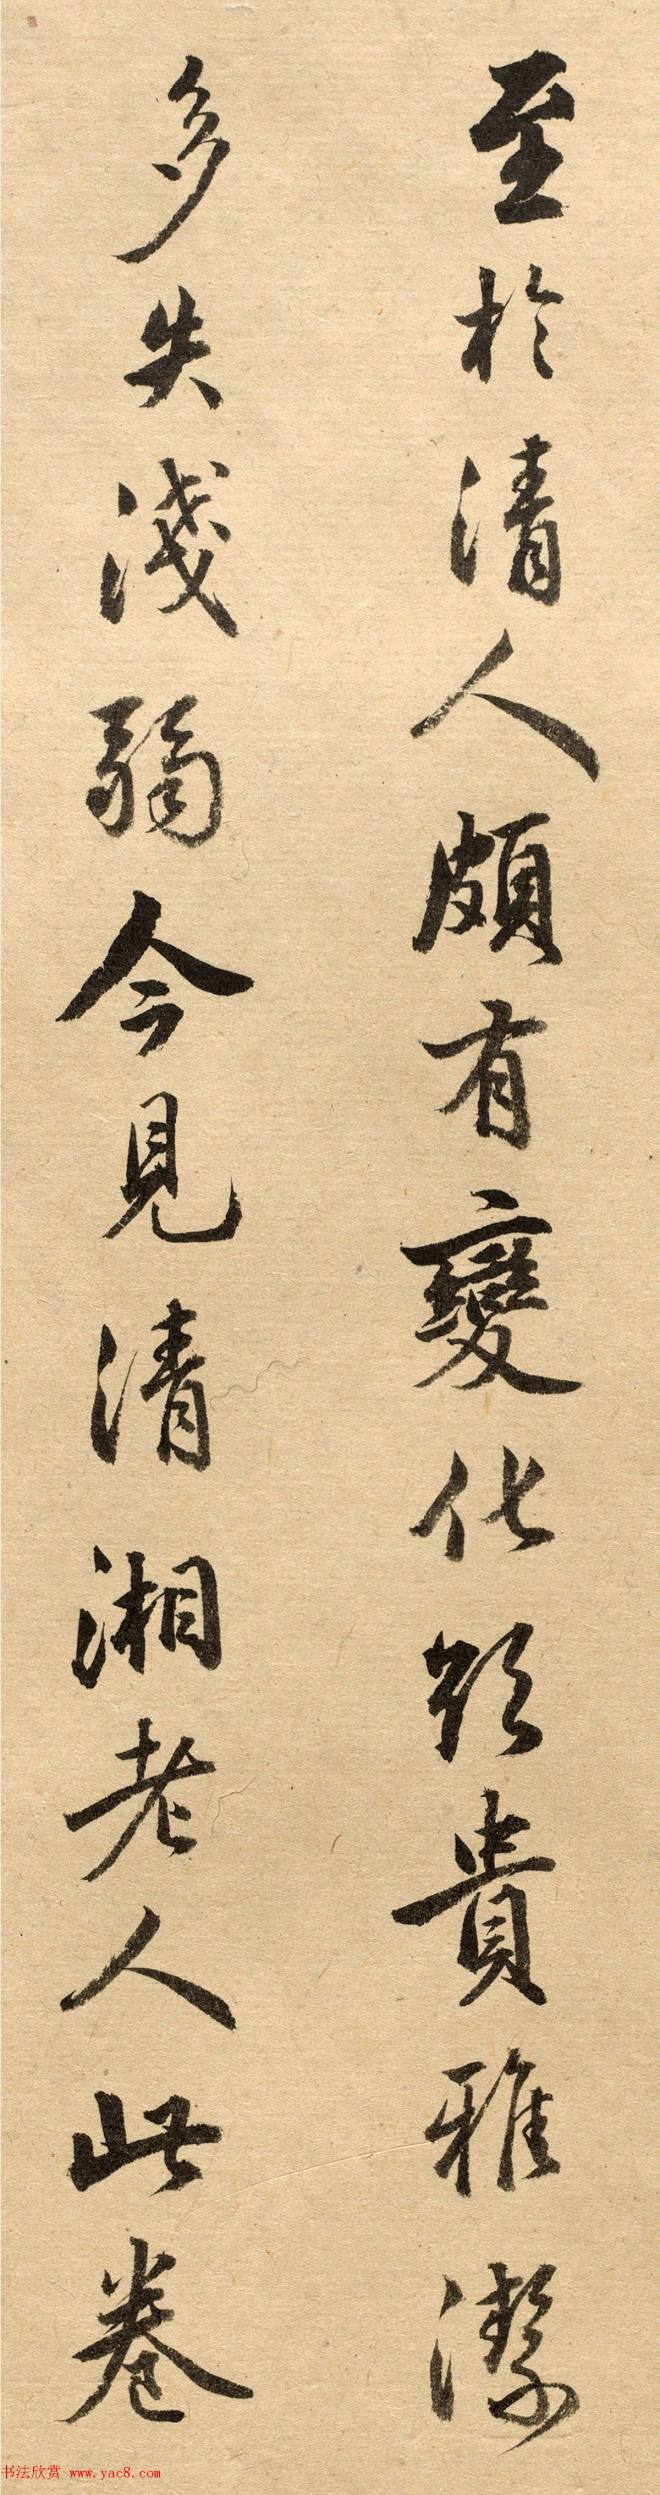 至於清人頗有變化欲貴雅潔
多失淺弱今見清湘老人此卷
书法欣赏 www.yac8.com